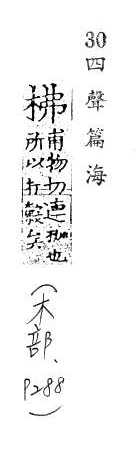 30 四聲篇海
柫 甫物切連枷也
所以打穀矣
(木部、
P288)